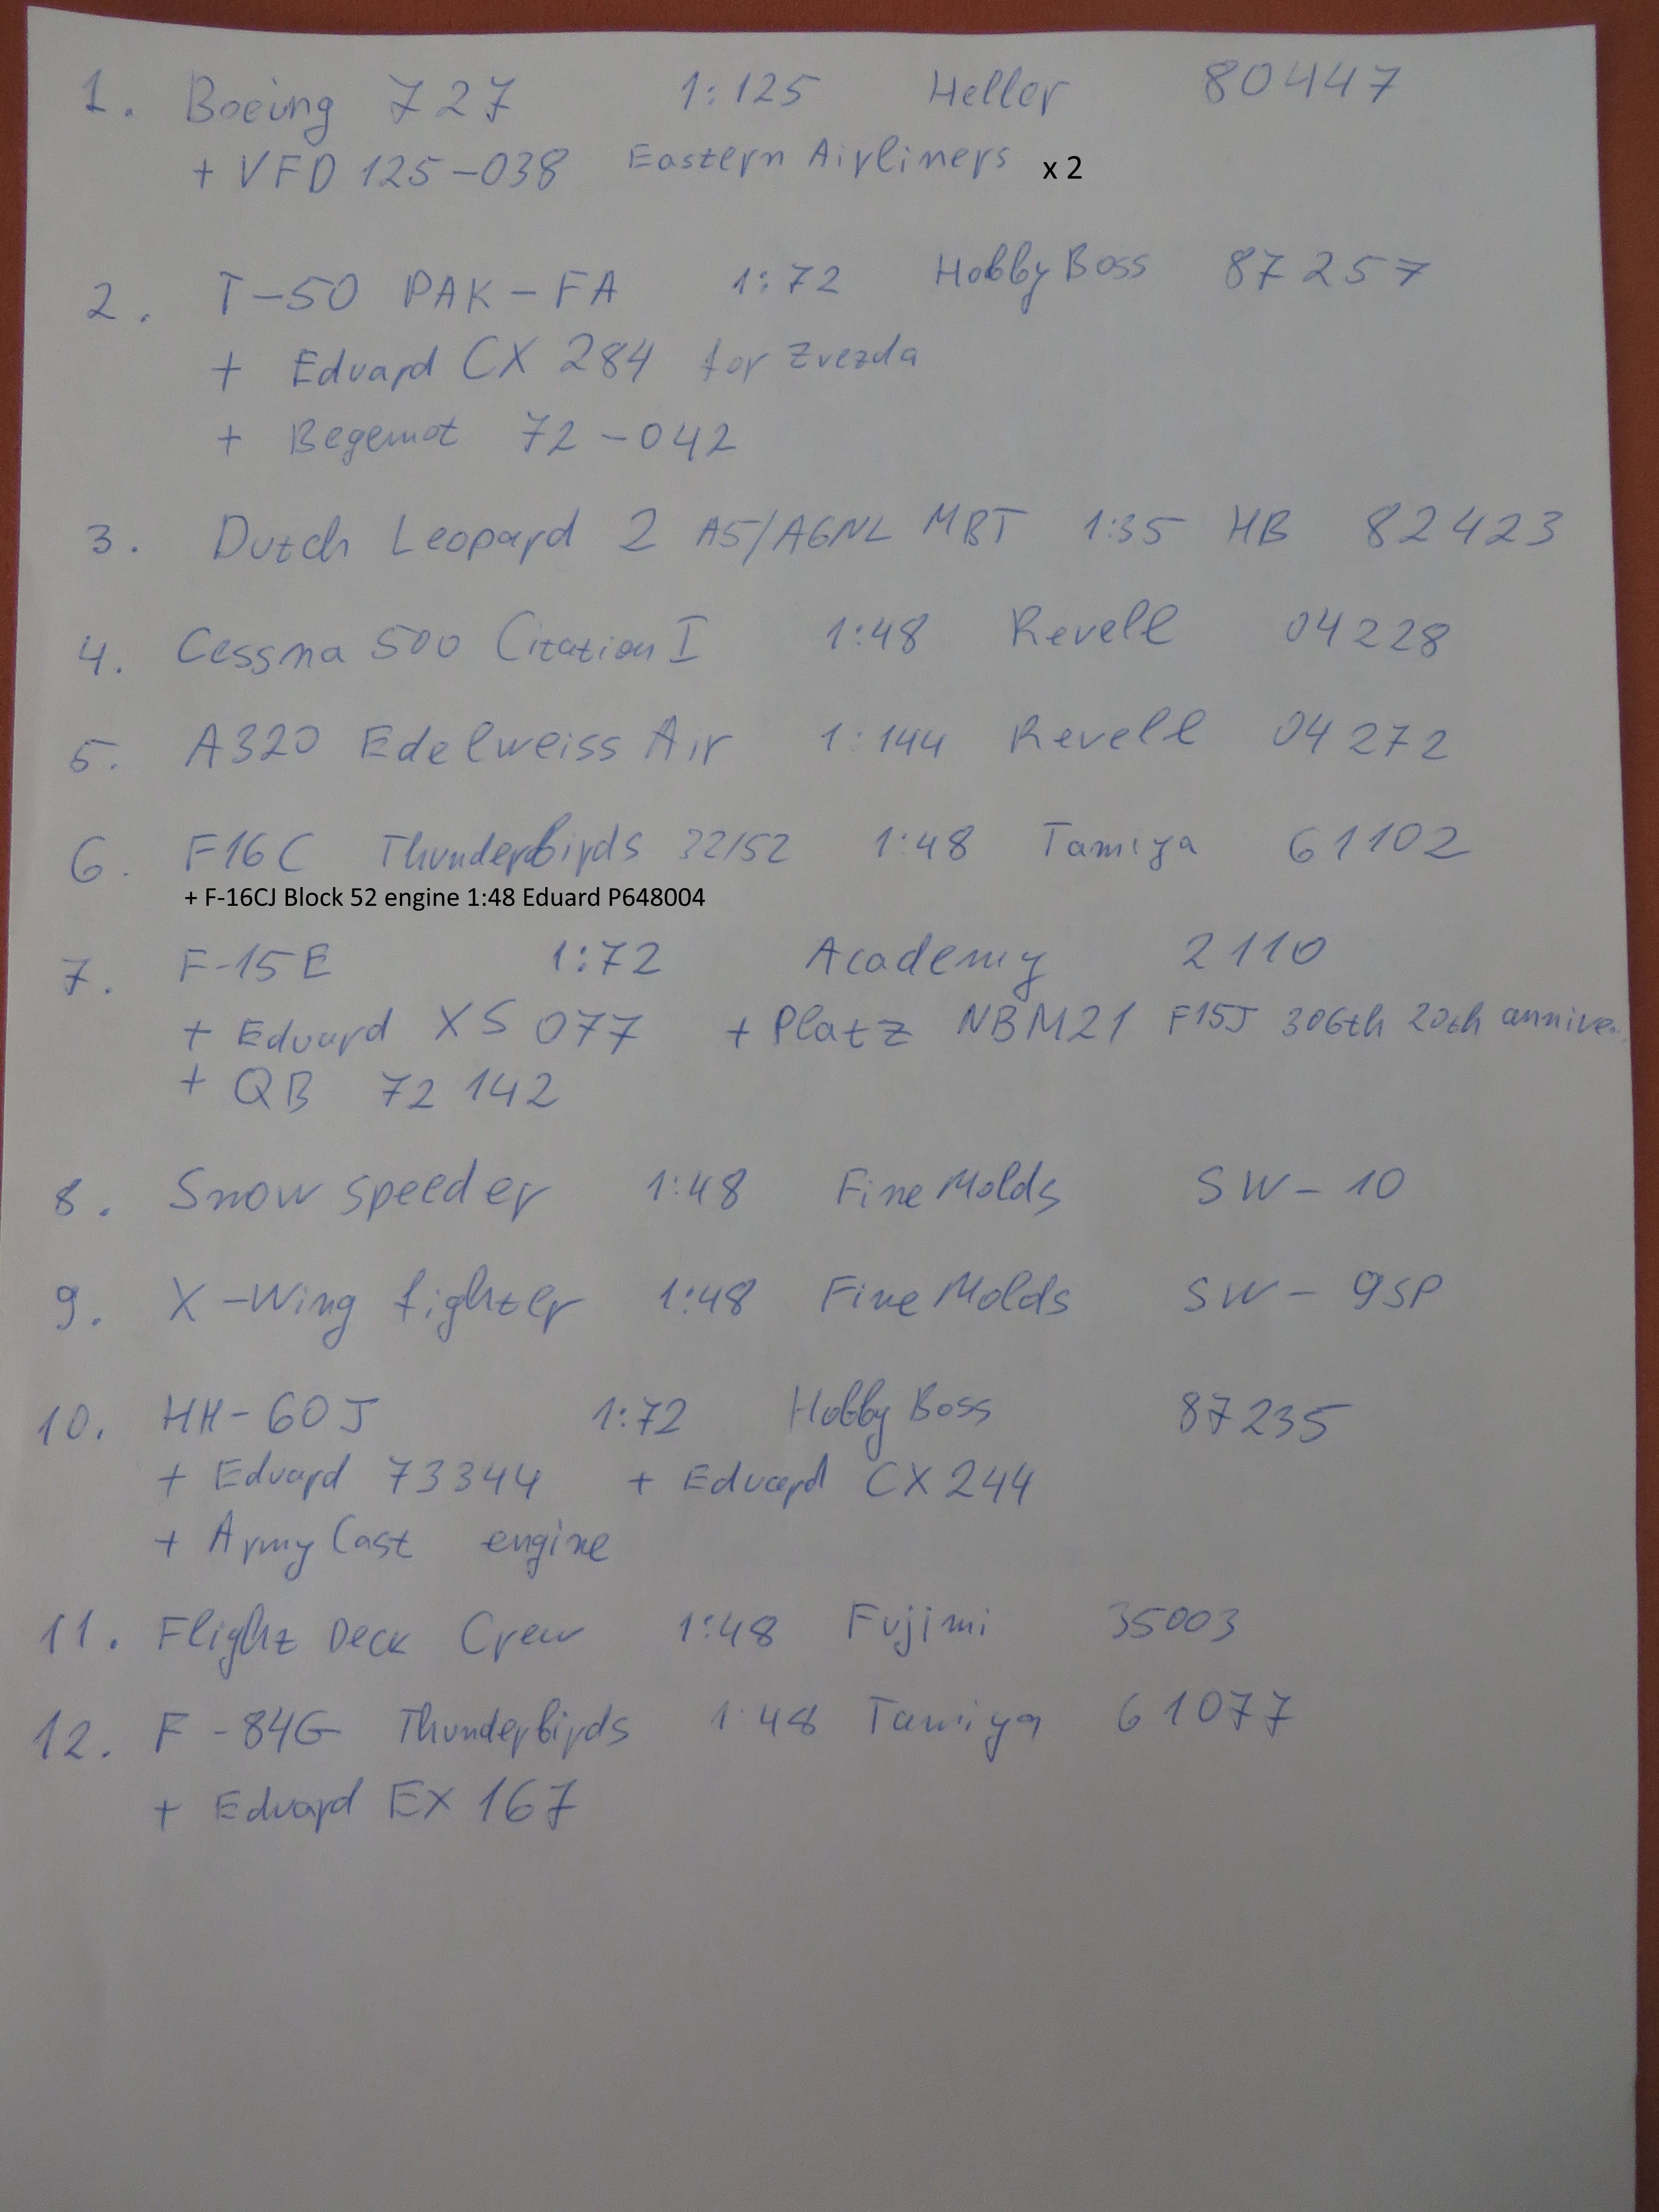 1. Boeing 727 1:125 Heller 80447
+ VFD 125-038 Eastern Airliners x 2
2. T-50 PAK-FA 1:72 HobbyBoss 87257
+ Eduard CX 284 for Zvezda
+ Begemot 72-042
3. Dutch Leopard 2 A5/A6NL MBT 1:35 HB 82423
4. Cessna 500 Citation I 1:48 Revell 04228
5. A320 Edelweiss Air 1:144 Revell 04272
6. F16C Thunderbirds 32/52 1:48 Tamiya 61102
+ F-16CJ Block 52 engine 1:48 Eduard P648004
7. F-15E 1:72 Academy 2110
+ Eduard XS 077 + Platz NBM21 F15J 306th 20th annive.
+ QB 72 142
8. Snow speeder 1:48 FineMolds SW-10
9. X-Wing fighter 1:48 FineMolds SW-9SP
10. HH-60J 1:72 HobbyBoss 87235
+ Eduard 73344 + Eduard CX 244
+ ArmyCast engine
11. Flight Deck Crew 1:48 Fujimi 35003
12. F-84G Thunderbirds 1:48 Tamiya 61077
+ Eduard EX 167